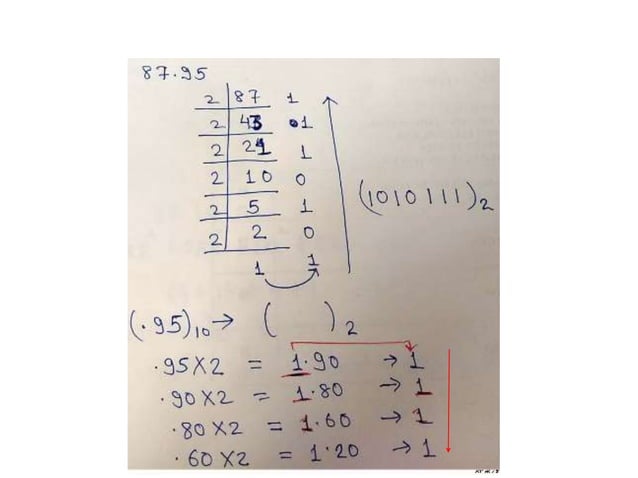 87.95
2 87 1
2 43 1
2 21 1
2 10 0
2 5 1
2 2 0
1 1
(1010111)₂
(.95)₁₀→ ( )₂
.95X2 = 1.90 → 1
.90X2 = 1.80 → 1
.80X2 = 1.60 → 1
.60X2 = 1.20 → 1